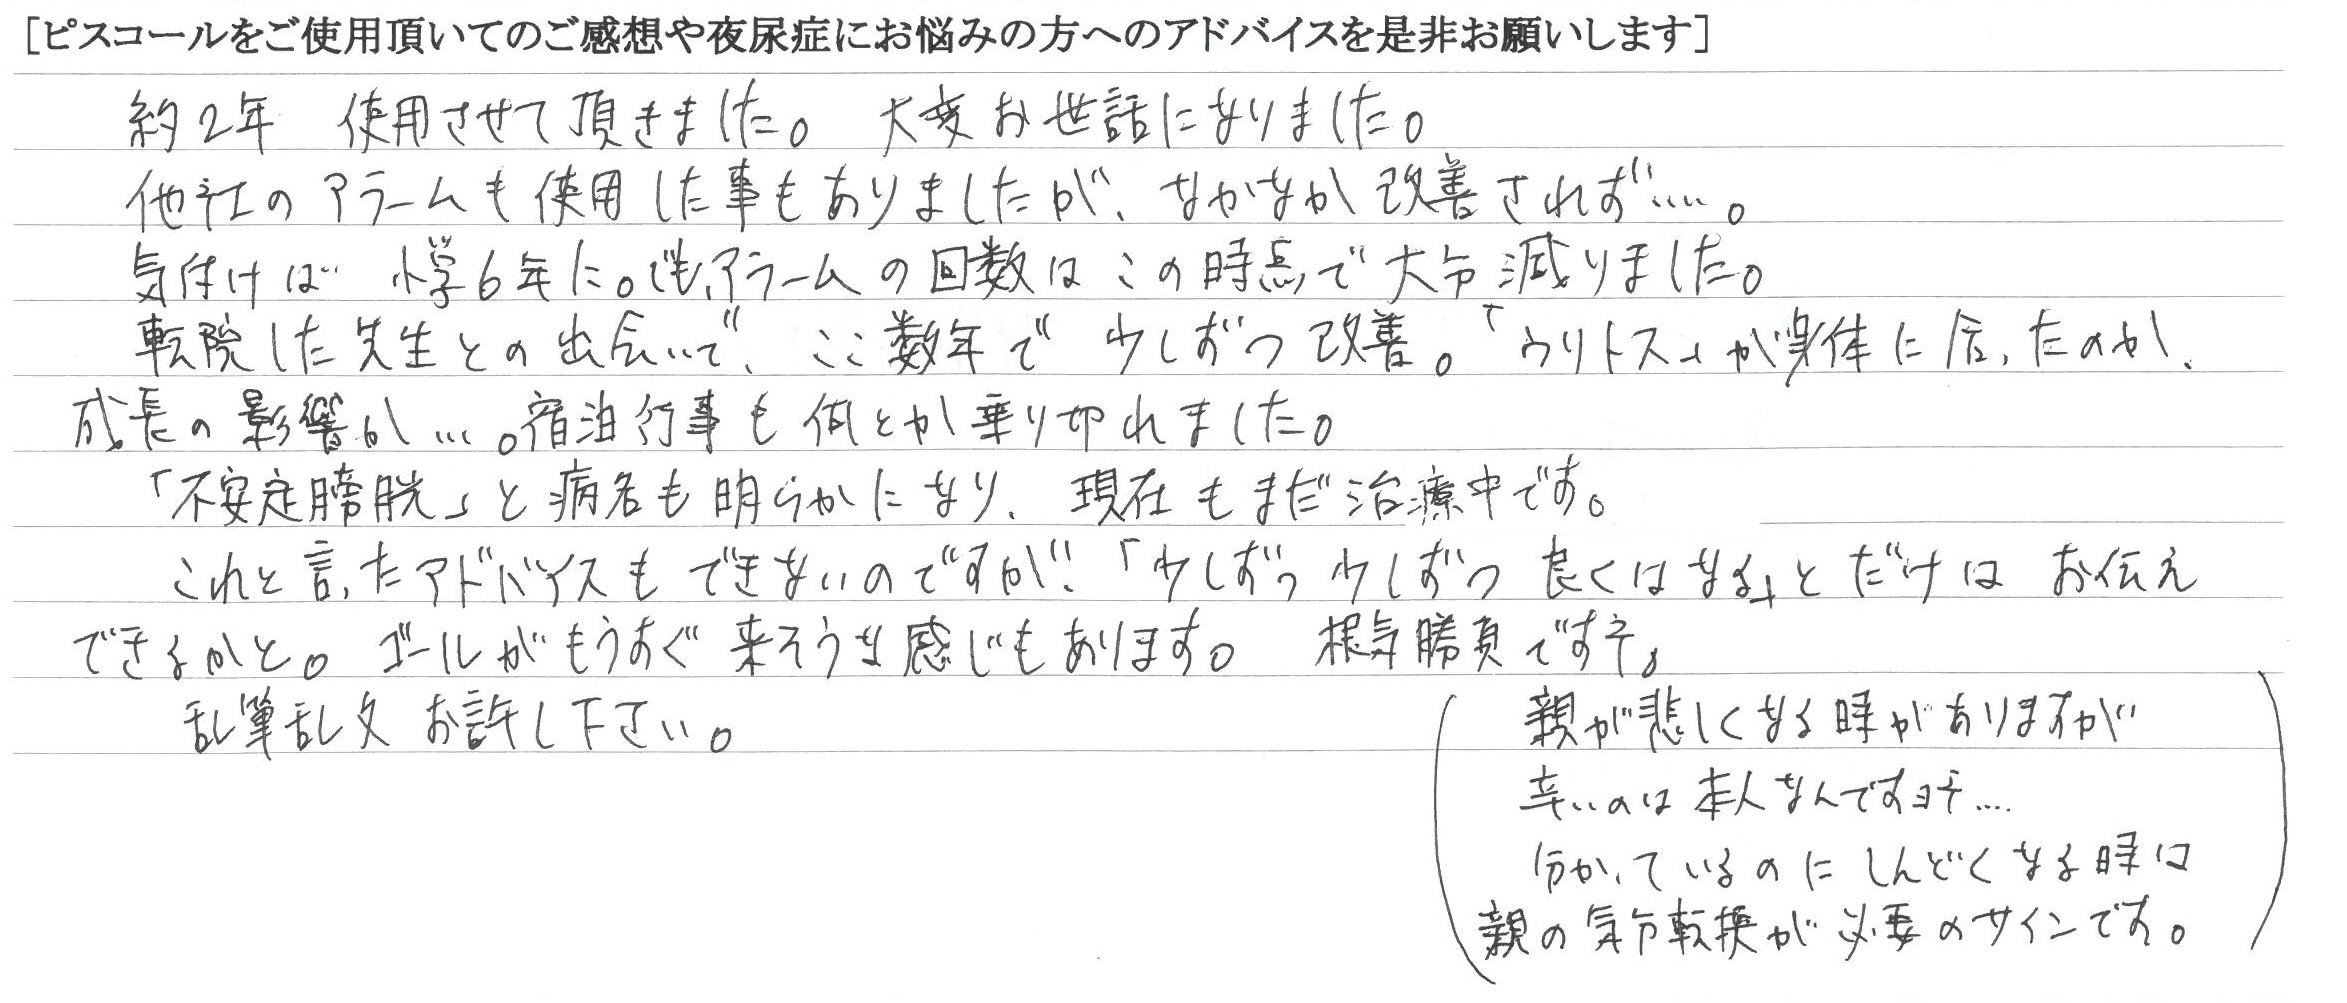 [ピスコールをご使用頂いてのご感想や夜尿症にお悩みの方へのアドバイスを是非お願いします]
約2年 使用させて頂きました。 大変お世話になりました。
他社のアラームも使用した事もありましたが、なかなか改善されず….。
気付けば 小学6年に。でも、アラームの回数はこの時点で大分減りました。
転院した先生との出会いで、ここ数年で 少しずつ改善。「ウリトス」が身体に合ったのか、
成長の影響か…。宿泊行事も何とか乗り切れました。
「不安定膀胱」と病名も明らかになり、現在もまだ治療中です。
これと言ったアドバイスもできないのですが、「少しずつ 少しずつ 良くはなる」とだけは お伝え
できるかと。ゴールがもうすぐ来そうな感じもあります。 根気勝負ですネ。
乱筆乱文 お許し下さい。
(親が悲しくなる時がありますが
辛いのは本人なんですヨネ….
分かっているのに しんどくなる時は
親の気分転換が必要のサインです。)